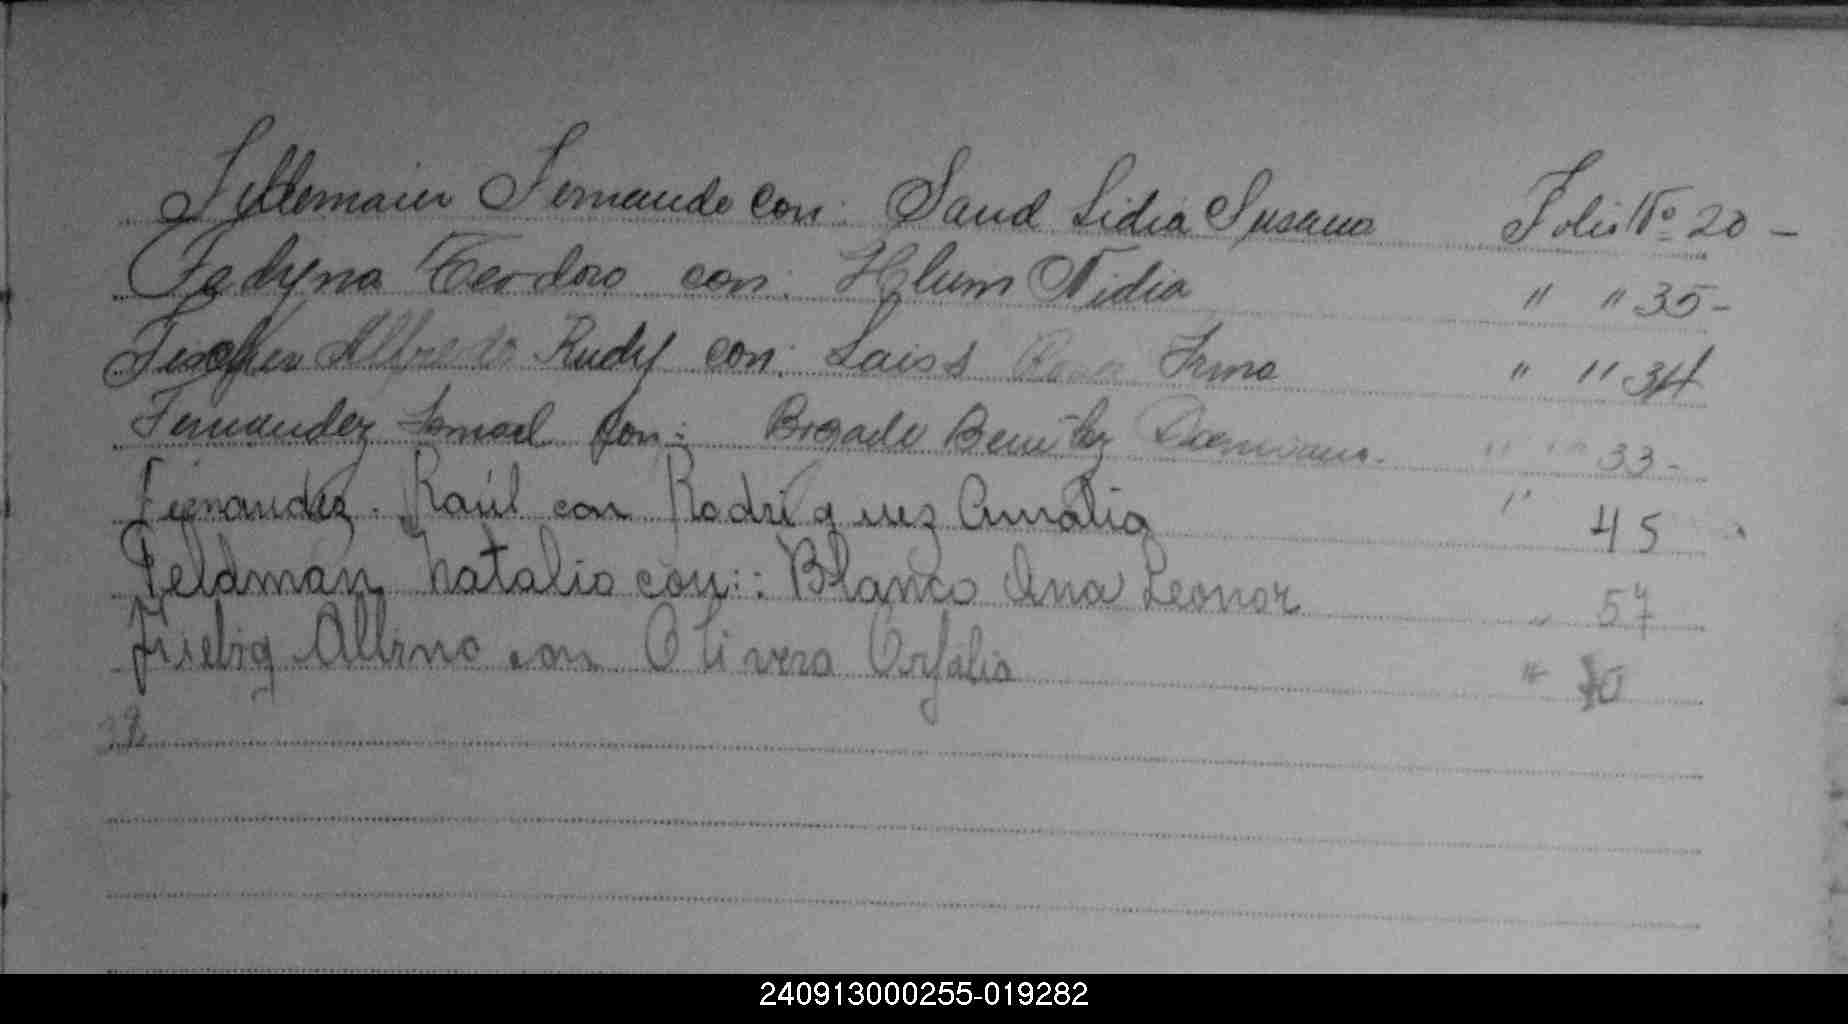 Fernando con: Sand Lidia Susana Folio Nº 20 -
Fadyna Teodoro con: Hlum Nidia " " 35 -
Fischer Alfredo Rudy con: Laiss Rosa Irma " " 34
Fernandez Ismael Con: Bogado Benitez Damiana. " " 33 -
Fernandez. Raúl con Rodriguez Amalia " 45
Feldman Natalio con: : Blanco Ana Leonor " 57
Friebig Albino con Olivera Orfalia " 70